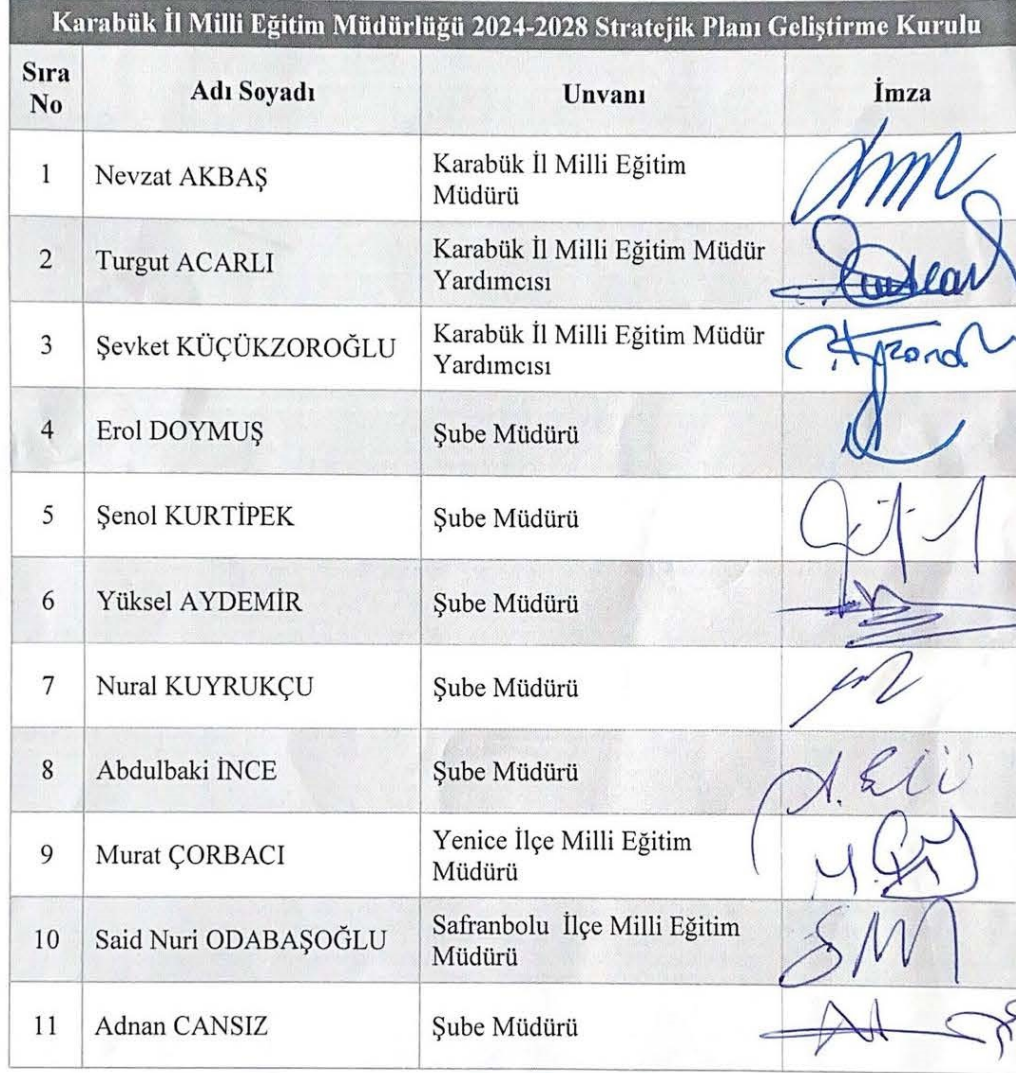 Karabük İl Milli Eğitim Müdürlüğü 2024-2028 Stratejik Planı Geliştirme Kurulu
Sıra No Adı Soyadı Unvanı İmza
1 Nevzat AKBAŞ Karabük İl Milli Eğitim
Müdürü
2 Turgut ACARLI Karabük İl Milli Eğitim Müdür
Yardımcısı
3 Şevket KÜÇÜKZOROĞLU Karabük İl Milli Eğitim Müdür
Yardımcısı
4 Erol DOYMUŞ Şube Müdürü
5 Şenol KURTİPEK Şube Müdürü
6 Yüksel AYDEMİR Şube Müdürü
7 Nural KUYRUKÇU Şube Müdürü
8 Abdulbaki İNCE Şube Müdürü
9 Murat ÇORBACI Yenice İlçe Milli Eğitim
Müdürü
10 Said Nuri ODABAŞOĞLU Safranbolu İlçe Milli Eğitim
Müdürü
11 Adnan CANSIZ Şube Müdürü